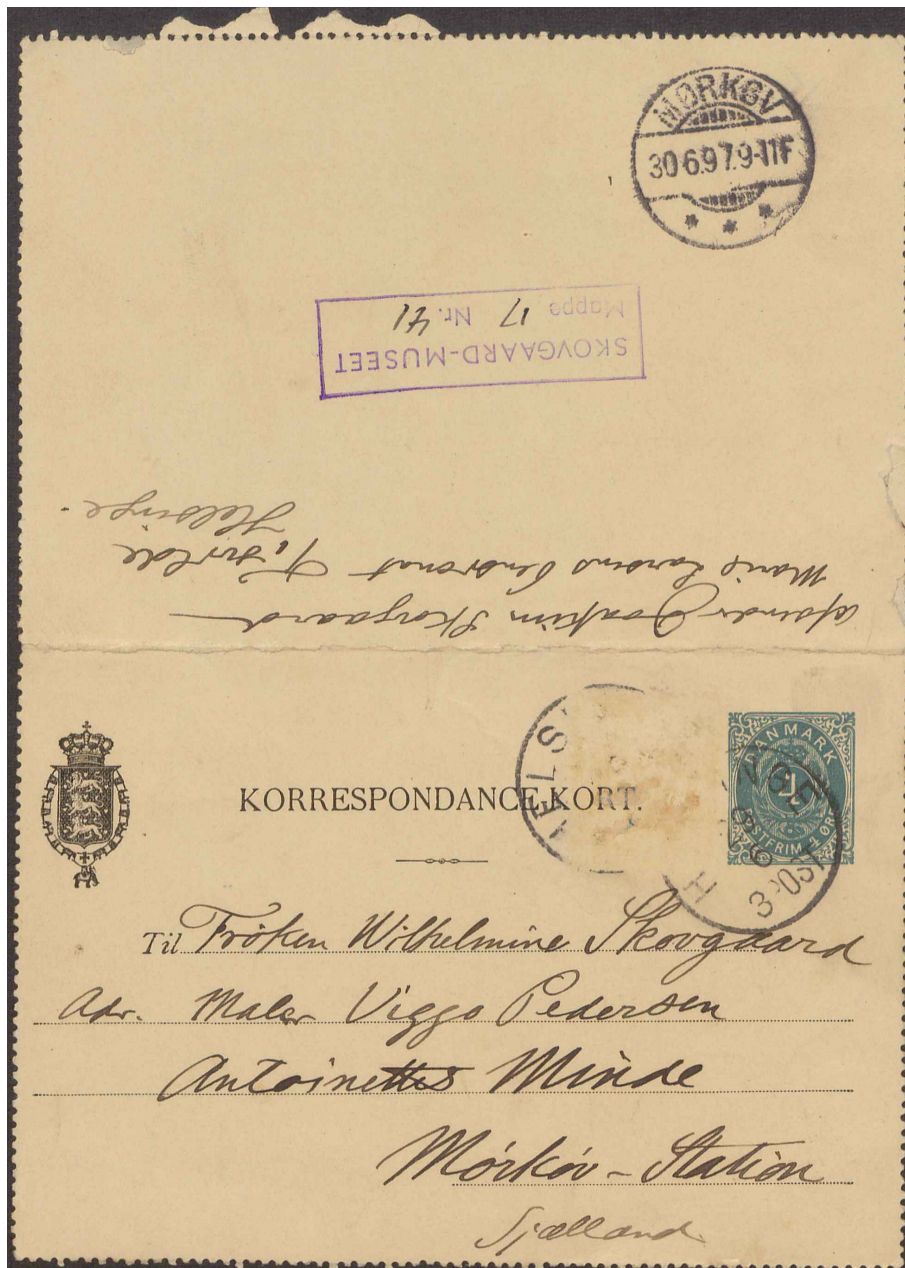 MØRKØV
30.6.97.9-11F
SKOVGAARD-MUSEET
Mappe 17 Nr. 41
Afsender Joakim Skovgaard
Marie Larsens Pensionat Tisvilde
Helsinge.
KORRESPONDANCE-KORT.
DANMARK
4
POSTFRIM. 4 ØRE
HELSINGE
3 POST
Til Fröken Wilhelmine Skovgaard
Adr. Maler Viggo Pedersen
Antoinettes Minde
Mörköv - Station
Sjælland.